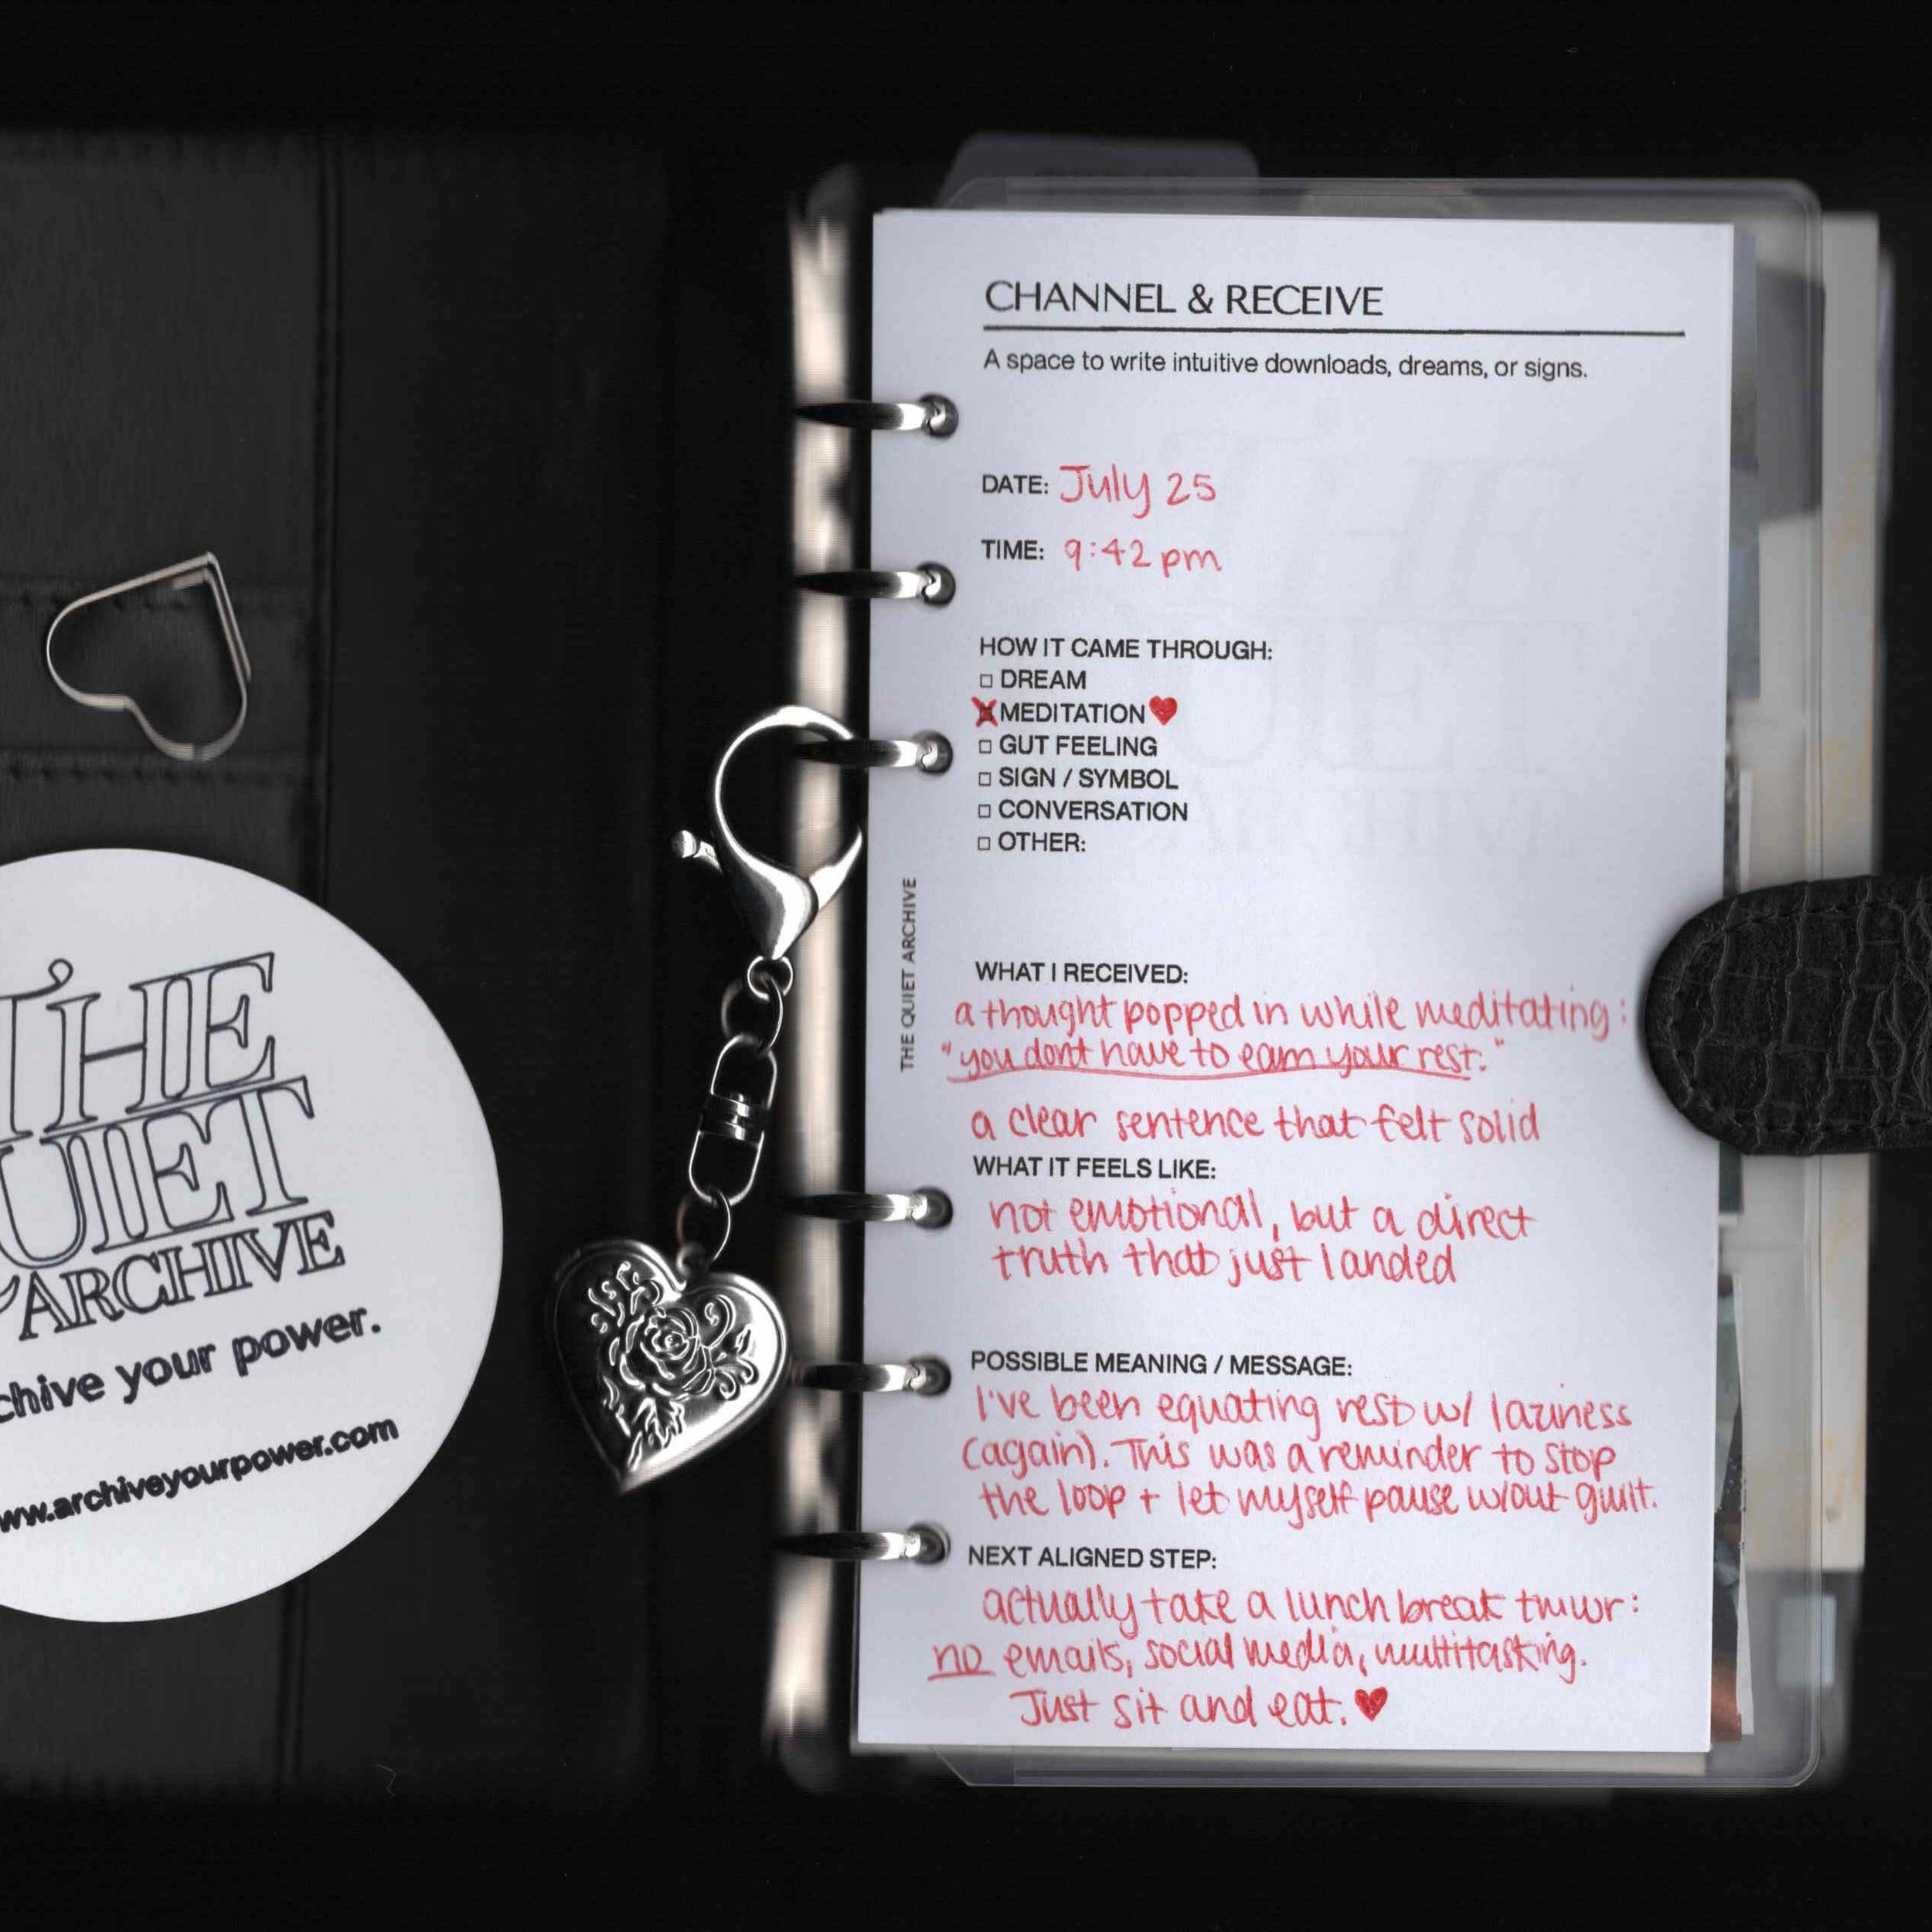 CHANNEL & RECEIVE
A space to write intuitive downloads, dreams, or signs.
DATE: July 25
TIME: 9:42 pm
HOW IT CAME THROUGH:
DREAM
MEDITATION
GUT FEELING
SIGN / SYMBOL
CONVERSATION
OTHER:
THE QUIET ARCHIVE
WHAT I RECEIVED:
a thought popped in while meditating:
"you dont have to earn your rest."
a clear sentence that felt solid
WHAT IT FEELS LIKE:
not emotional, but a direct
truth that just landed
POSSIBLE MEANING / MESSAGE:
I've been equating rest w/ laziness
(again). This was a reminder to stop
the loop + let myself pause w/out guilt.
NEXT ALIGNED STEP:
actually take a lunch break tmwr:
no emails, social media, multitasking.
Just sit and eat.
THE
UIET
ARCHIVE
chive your power.
ww.archiveyourpower.com